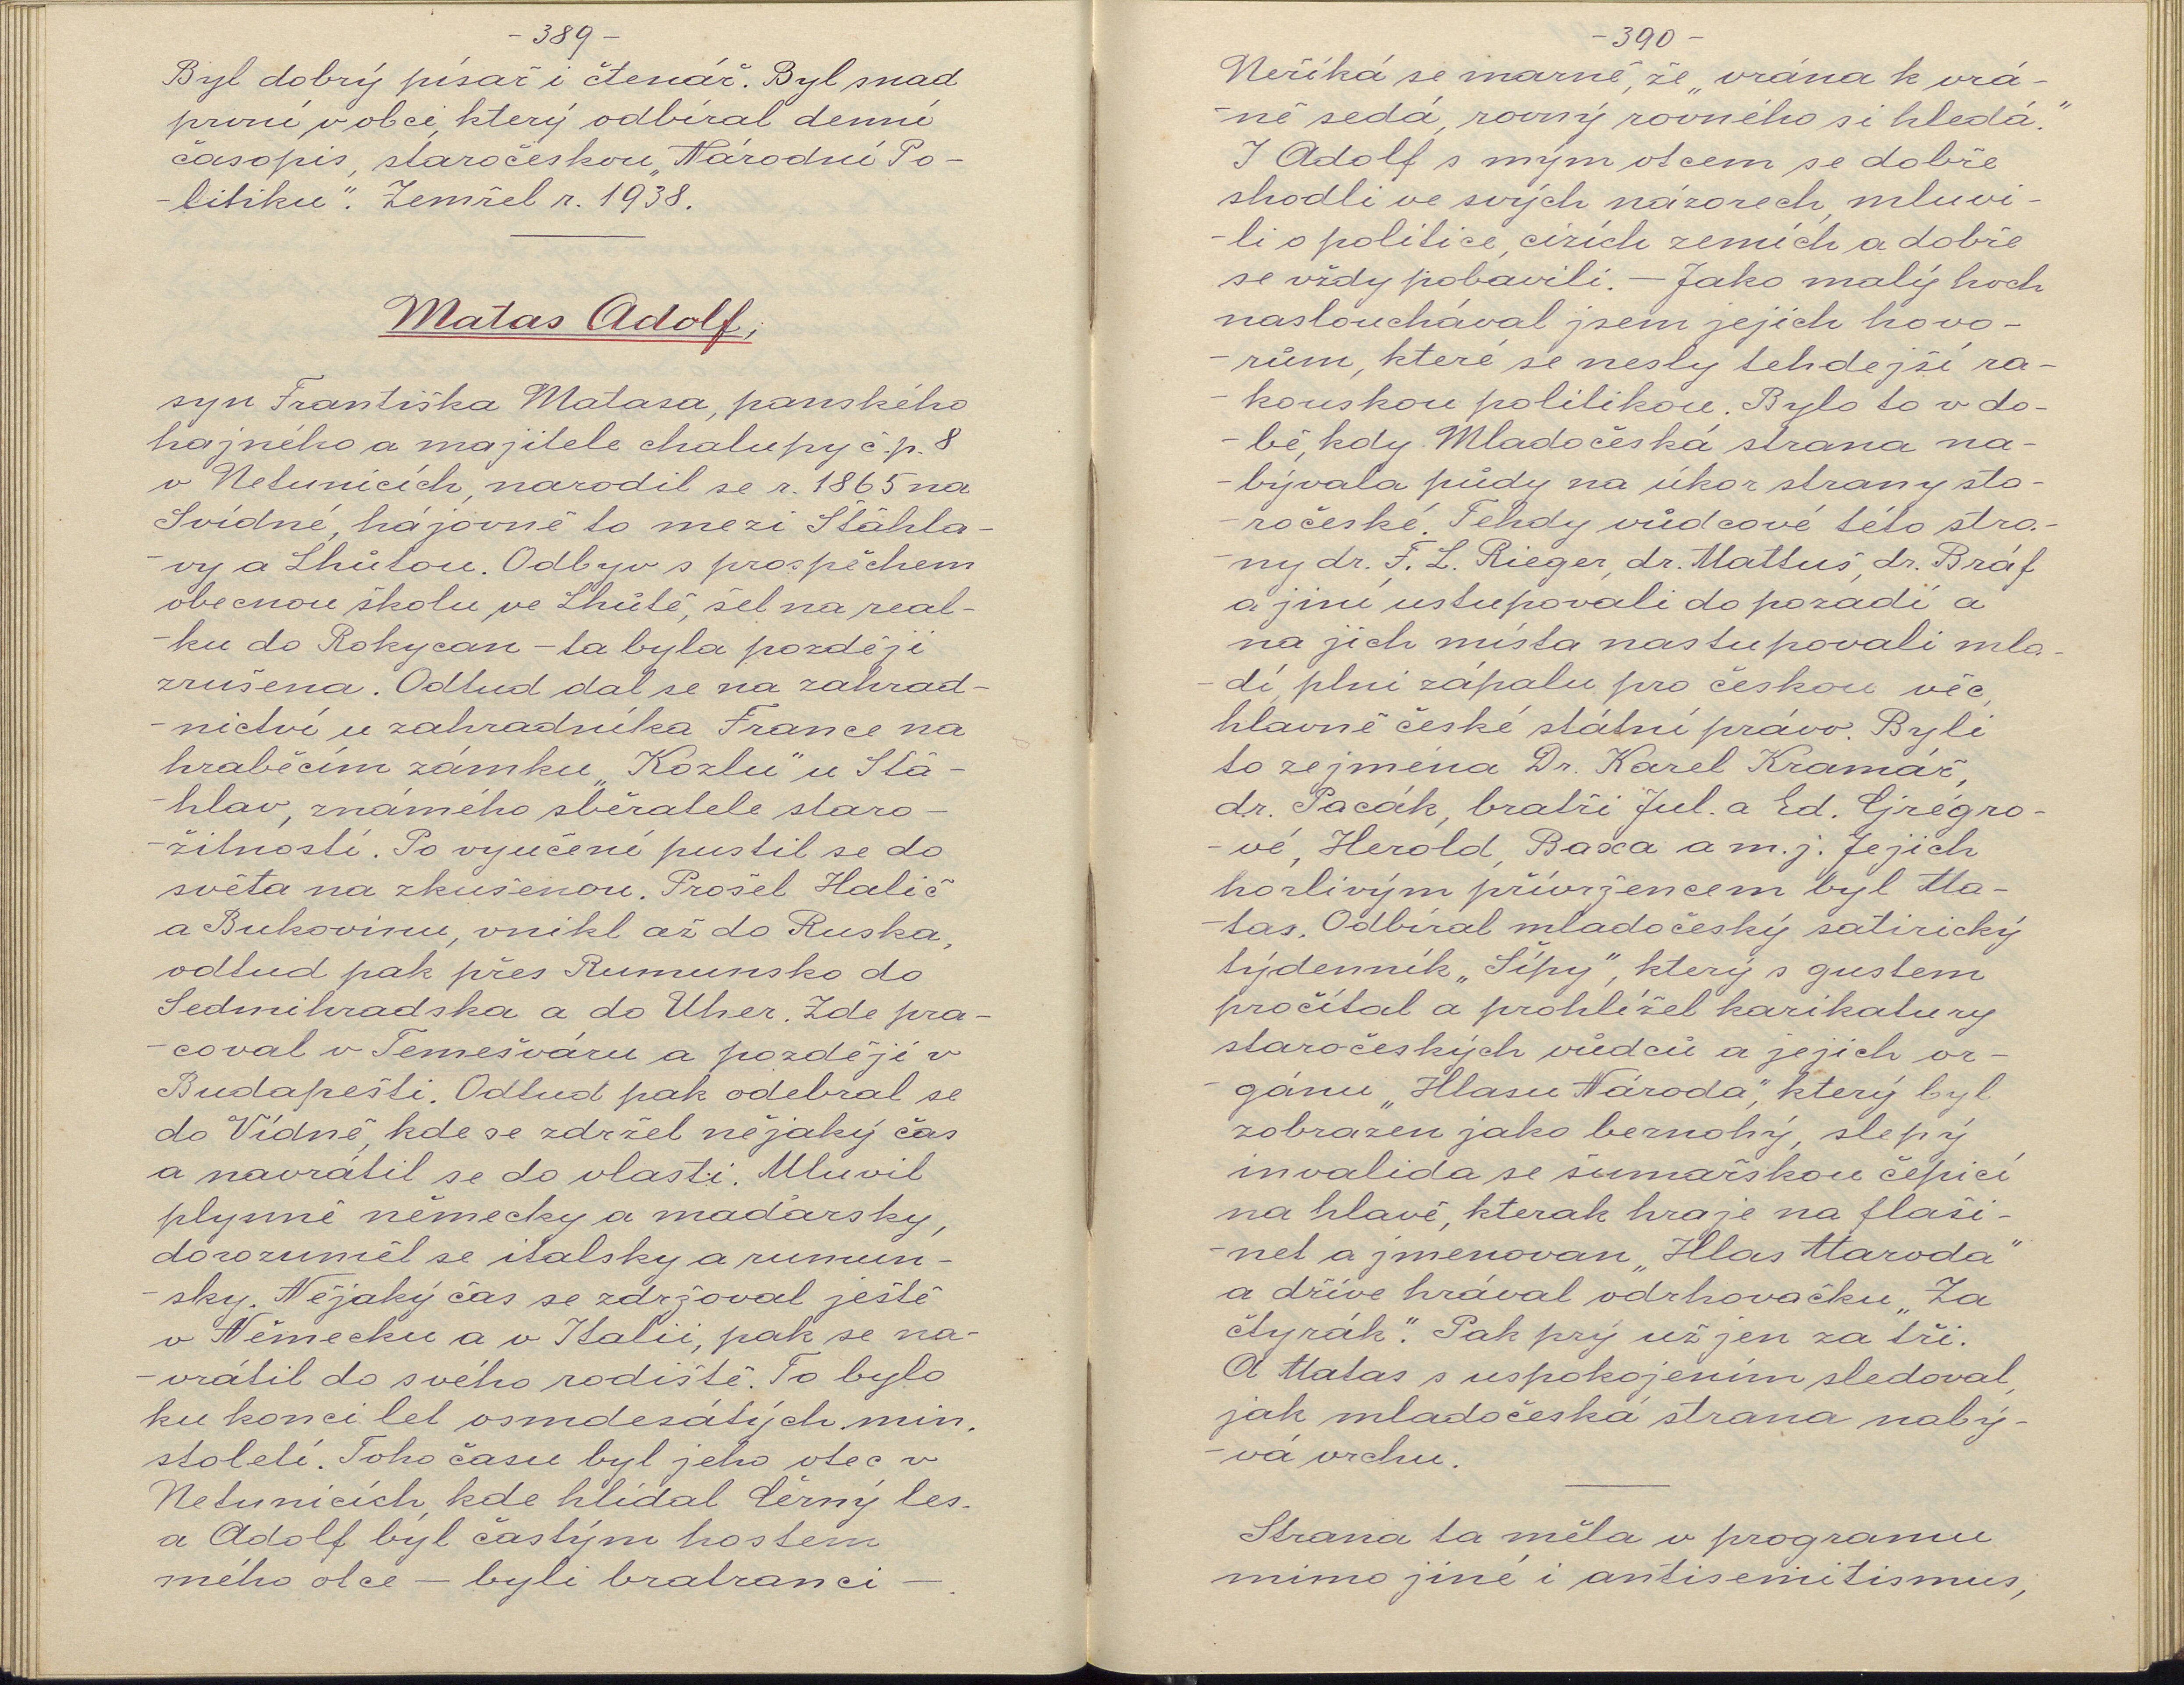 - 389 -
Byl dobrý písař i čtenář. Byl snad
první v obci, který odbíral denní
časopis, staročeskou „Národní Po-
-litiku". Zemřel r. 1938.
Matas Adolf,
syn Františka Matasa, panského
hajného a majitele chalupy č.p. 8
v Netunicích, narodil se r. 1865 na
Svídné, hájovně to mezi Stáhla-
-vy a Lhůtou. Odbyv s prospěchem
obecnou školu ve Lhůtě, šel na real-
-ku do Rokycan - ta byla později
zrušena. Odtud dal se na zahrad-
-nictví u zahradníka France na
hraběcím zámku „Kozlu" u Stá-
-hlav, známého sběratele staro-
-žitností. Po vyučení pustil se do
světa na zkušenou. Prošel Halič
a Bukovinu, vnikl až do Ruska,
odtud pak přes Rumunsko do
Sedmihradska a do Uher. Zde pra-
-coval v Temešváru a později v
Budapešti. Odtud pak odebral se
do Vídně, kde se zdržel nějaký čas
a navrátil se do vlasti. Mluvil
plynně německy a maďarsky,
dorozuměl se italsky a rumun-
-sky. Nějaký čas se zdržoval ještě
v Německu a v Italii, pak se na-
-vrátil do svého rodiště. To bylo
ku konci let osmdesátých min.
století. Toho času byl jeho otec v
Netunicích, kde hlídal Černý les.
a Adolf byl častým hostem
mého otce — byli bratranci —.
- 390 -
Neříká se marně, že „vrána k vrá-
-ně sedá, rovný rovného si hledá."
I Adolf s mým otcem se dobře
shodli ve svých názorech, mluvi-
-li o politice, cizích zemích a dobře
se vždy pobavili. — Jako malý hoch
naslouchával jsem jejich hovo-
-rům, které se nesly tehdejší ra-
-kouskou politikou. Bylo to v do-
-bě, kdy Mladočeská strana na-
-bývala půdy na úkor strany sta-
-ročeské. Tehdy vůdcové této stra-
-ny dr. F. L. Rieger, dr. Mattuš, dr. Bráf
a jiní ustupovali do pozadí a
na jich místa nastupovali mla-
-dí, plni zápalu pro českou věc,
hlavně české státní právo. Byli
to zejména Dr. Karel Kramář,
dr. Pacák, bratři Jul. a Ed. Grégro-
-vé, Herold, Baxa a m. j. Jejich
horlivým přívržencem byl Ma-
-tas. Odbíral mladočeský satirický
týdenník „Šípy", který s gustem
pročítal a prohlížel karikatury
staročeských vůdců a jejich or-
-gánu „Hlasu Národa", který byl
zobrazen jako beznohý, slepý
invalida se šumařskou čepicí
na hlavě, kterak hraje na flaši-
-net a jmenován „Hlas Maroda"
a dříve hrával odrhovačku „Za
čtyrák". Pak prý už jen za tři.
A Matas s uspokojením sledoval,
jak mladočeská strana nabý-
-vá vrchu.
Strana ta měla v programu
mimo jiné i antisemitismus,